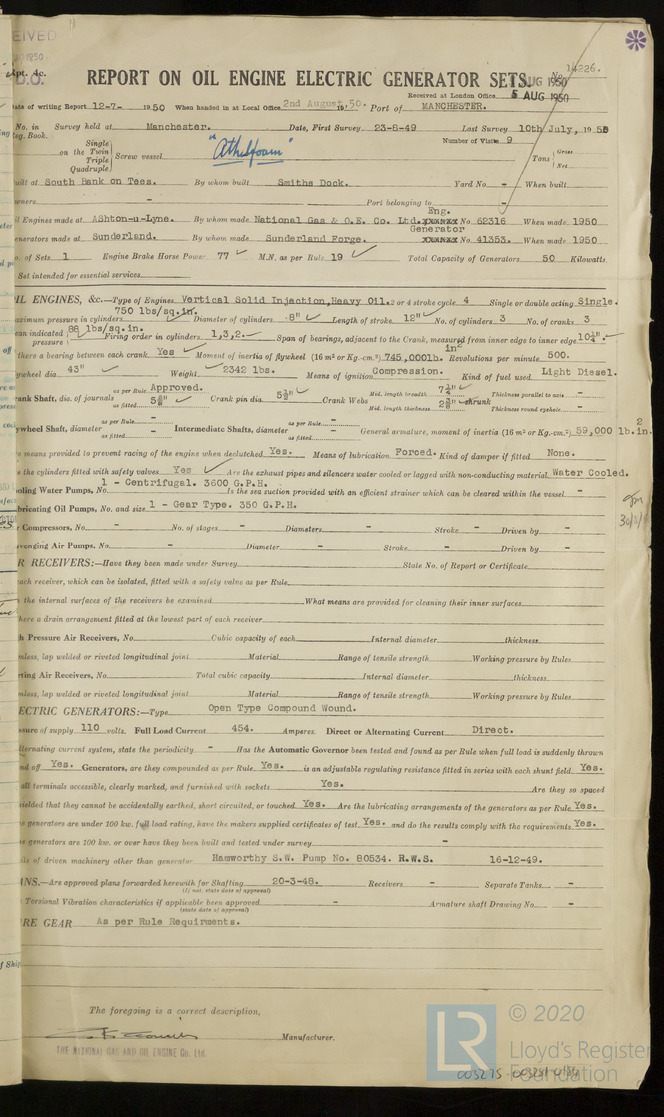 14226.
EIVED
1950
D.O.
REPORT ON OIL ENGINE ELECTRIC GENERATOR SETS.
AUG 1950
Received at London Office 5 AUG 1950
ate of writing Report 12-7- 1950 When handed in at Local Office 2nd August, 1950. Port of MANCHESTER.
No. in Survey held at Manchester. Date, First Survey 23-8-49 Last Survey 10th July, 1950
eg. Book. Number of Visits 9
Single
on the Twin
Triple
Quadruple
Screw vessel
"Athelfoam"
Tons Gross
Net
uilt at South Bank on Tees. By whom built Smiths Dock. Yard No. - When built
wners - Port belonging to
il Engines made at Ashton-u-Lyne. By whom made National Gas & O.E. Co. Ltd. Eng. No 62316 When made 1950
enerators made at Sunderland. By whom made Sunderland Forge. Generator No 41353. When made 1950
o. of Sets 1 Engine Brake Horse Power 77 M.N. as per Rule 19 Total Capacity of Generators 50 Kilowatts
Set intended for essential services
IL ENGINES, &c.—Type of Engines Vertical Solid Injection, Heavy Oil. 2 or 4 stroke cycle 4 Single or double acting Single.
aximum pressure in cylinders 750 lbs/sq.in. Diameter of cylinders 8" Length of stroke 12" No. of cylinders 3 No. of cranks 3
ean indicated pressure 88 lbs/sq.in. Firing order in cylinders 1,3,2. Span of bearings, adjacent to the Crank, measured from inner edge to inner edge 10¼".
there a bearing between each crank Yes Moment of inertia of flywheel (16 m² or Kg.-cm.²) 745,000lb. in² Revolutions per minute 500.
ywheel dia 43" Weight 2342 lbs. Means of ignition Compression. Kind of fuel used Light Diesel.
rank Shaft, dia. of journals as per Rule Approved. as fitted Crank pin dia. Crank Webs Mid. length breadth Mid. length thickness shrunk Thickness parallel to axis - Thickness round eyehole -
ywheel Shaft, diameter as per Rule - as fitted - Intermediate Shafts, diameter as per Rule - as fitted - General armature, moment of inertia (16 m² or Kg.-cm.²) 59,000 lb.in.2
means provided to prevent racing of the engine when declutched Yes. Means of lubrication Forced. Kind of damper if fitted None.
e the cylinders fitted with safety valves Yes Are the exhaust pipes and silencers water cooled or lagged with non-conducting material Water Cooled.
oling Water Pumps, No. 1 - Centrifugal. 3600 G.P.H. Is the sea suction provided with an efficient strainer which can be cleared within the vessel -
bricating Oil Pumps, No. and size 1 - Gear Type. 350 G.P.H.
r Compressors, No. - No. of stages - Diameters - Stroke - Driven by -
venging Air Pumps, No. - Diameter - Stroke - Driven by -
R RECEIVERS:—Have they been made under Survey State No. of Report or Certificate
each receiver, which can be isolated, fitted with a safety valve as per Rule
the internal surfaces of the receivers be examined What means are provided for cleaning their inner surfaces
here a drain arrangement fitted at the lowest part of each receiver
h Pressure Air Receivers, No. Cubic capacity of each Internal diameter thickness
mless, lap welded or riveted longitudinal joint Material Range of tensile strength Working pressure by Rules
rting Air Receivers, No. Total cubic capacity Internal diameter thickness
mless, lap welded or riveted longitudinal joint Material Range of tensile strength Working pressure by Rules
ECTRIC GENERATORS:—Type Open Type Compound Wound.
ssure of supply 110 volts. Full Load Current 454. Amperes. Direct or Alternating Current Direct.
lternating current system, state the periodicity - Has the Automatic Governor been tested and found as per Rule when full load is suddenly thrown
nd off Yes. Generators, are they compounded as per Rule Yes. is an adjustable regulating resistance fitted in series with each shunt field Yes.
all terminals accessible, clearly marked, and furnished with sockets Yes. Are they so spaced
ielded that they cannot be accidentally earthed, short circuited, or touched Yes. Are the lubricating arrangements of the generators as per Rule Yes.
e generators are under 100 kw. full load rating, have the makers supplied certificates of test Yes. and do the results comply with the requirements Yes.
e generators are 100 kw. or over have they been built and tested under survey -
ils of driven machinery other than generator Hamworthy S.W. Pump No. 80534. R.W.S. 16-12-49.
NS.—Are approved plans forwarded herewith for Shafting 20-3-48. Receivers - Separate Tanks -
(If not, state date of approval)
Torsional Vibration characteristics if applicable been approved - Armature shaft Drawing No. -
(state date of approval)
RE GEAR As per Rule Requirments.
The foregoing is a correct description,
Manufacturer.
THE NATIONAL GAS AND OIL ENGINE Co. Ltd.
LR © 2020
Lloyd's Register
Foundation